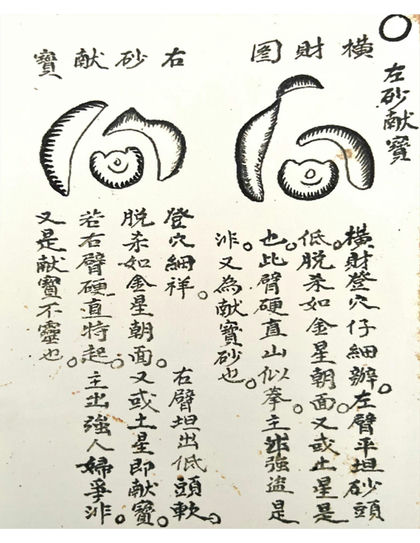 左砂献寶
橫財图
橫財登穴仔細辦。左臂平坦砂頭
低。脫杀如金星朝面。又或土星是
也。此臂硬直山似拳。主出強盜是
非。又為献寶砂也。
右砂献寶
登穴細祥。右臂坦出低頭軟。
脫杀如金星朝面。又或土星即献寶。
若右臂硬直特起。主出強人婦爭非。
又是献寶不靈也。